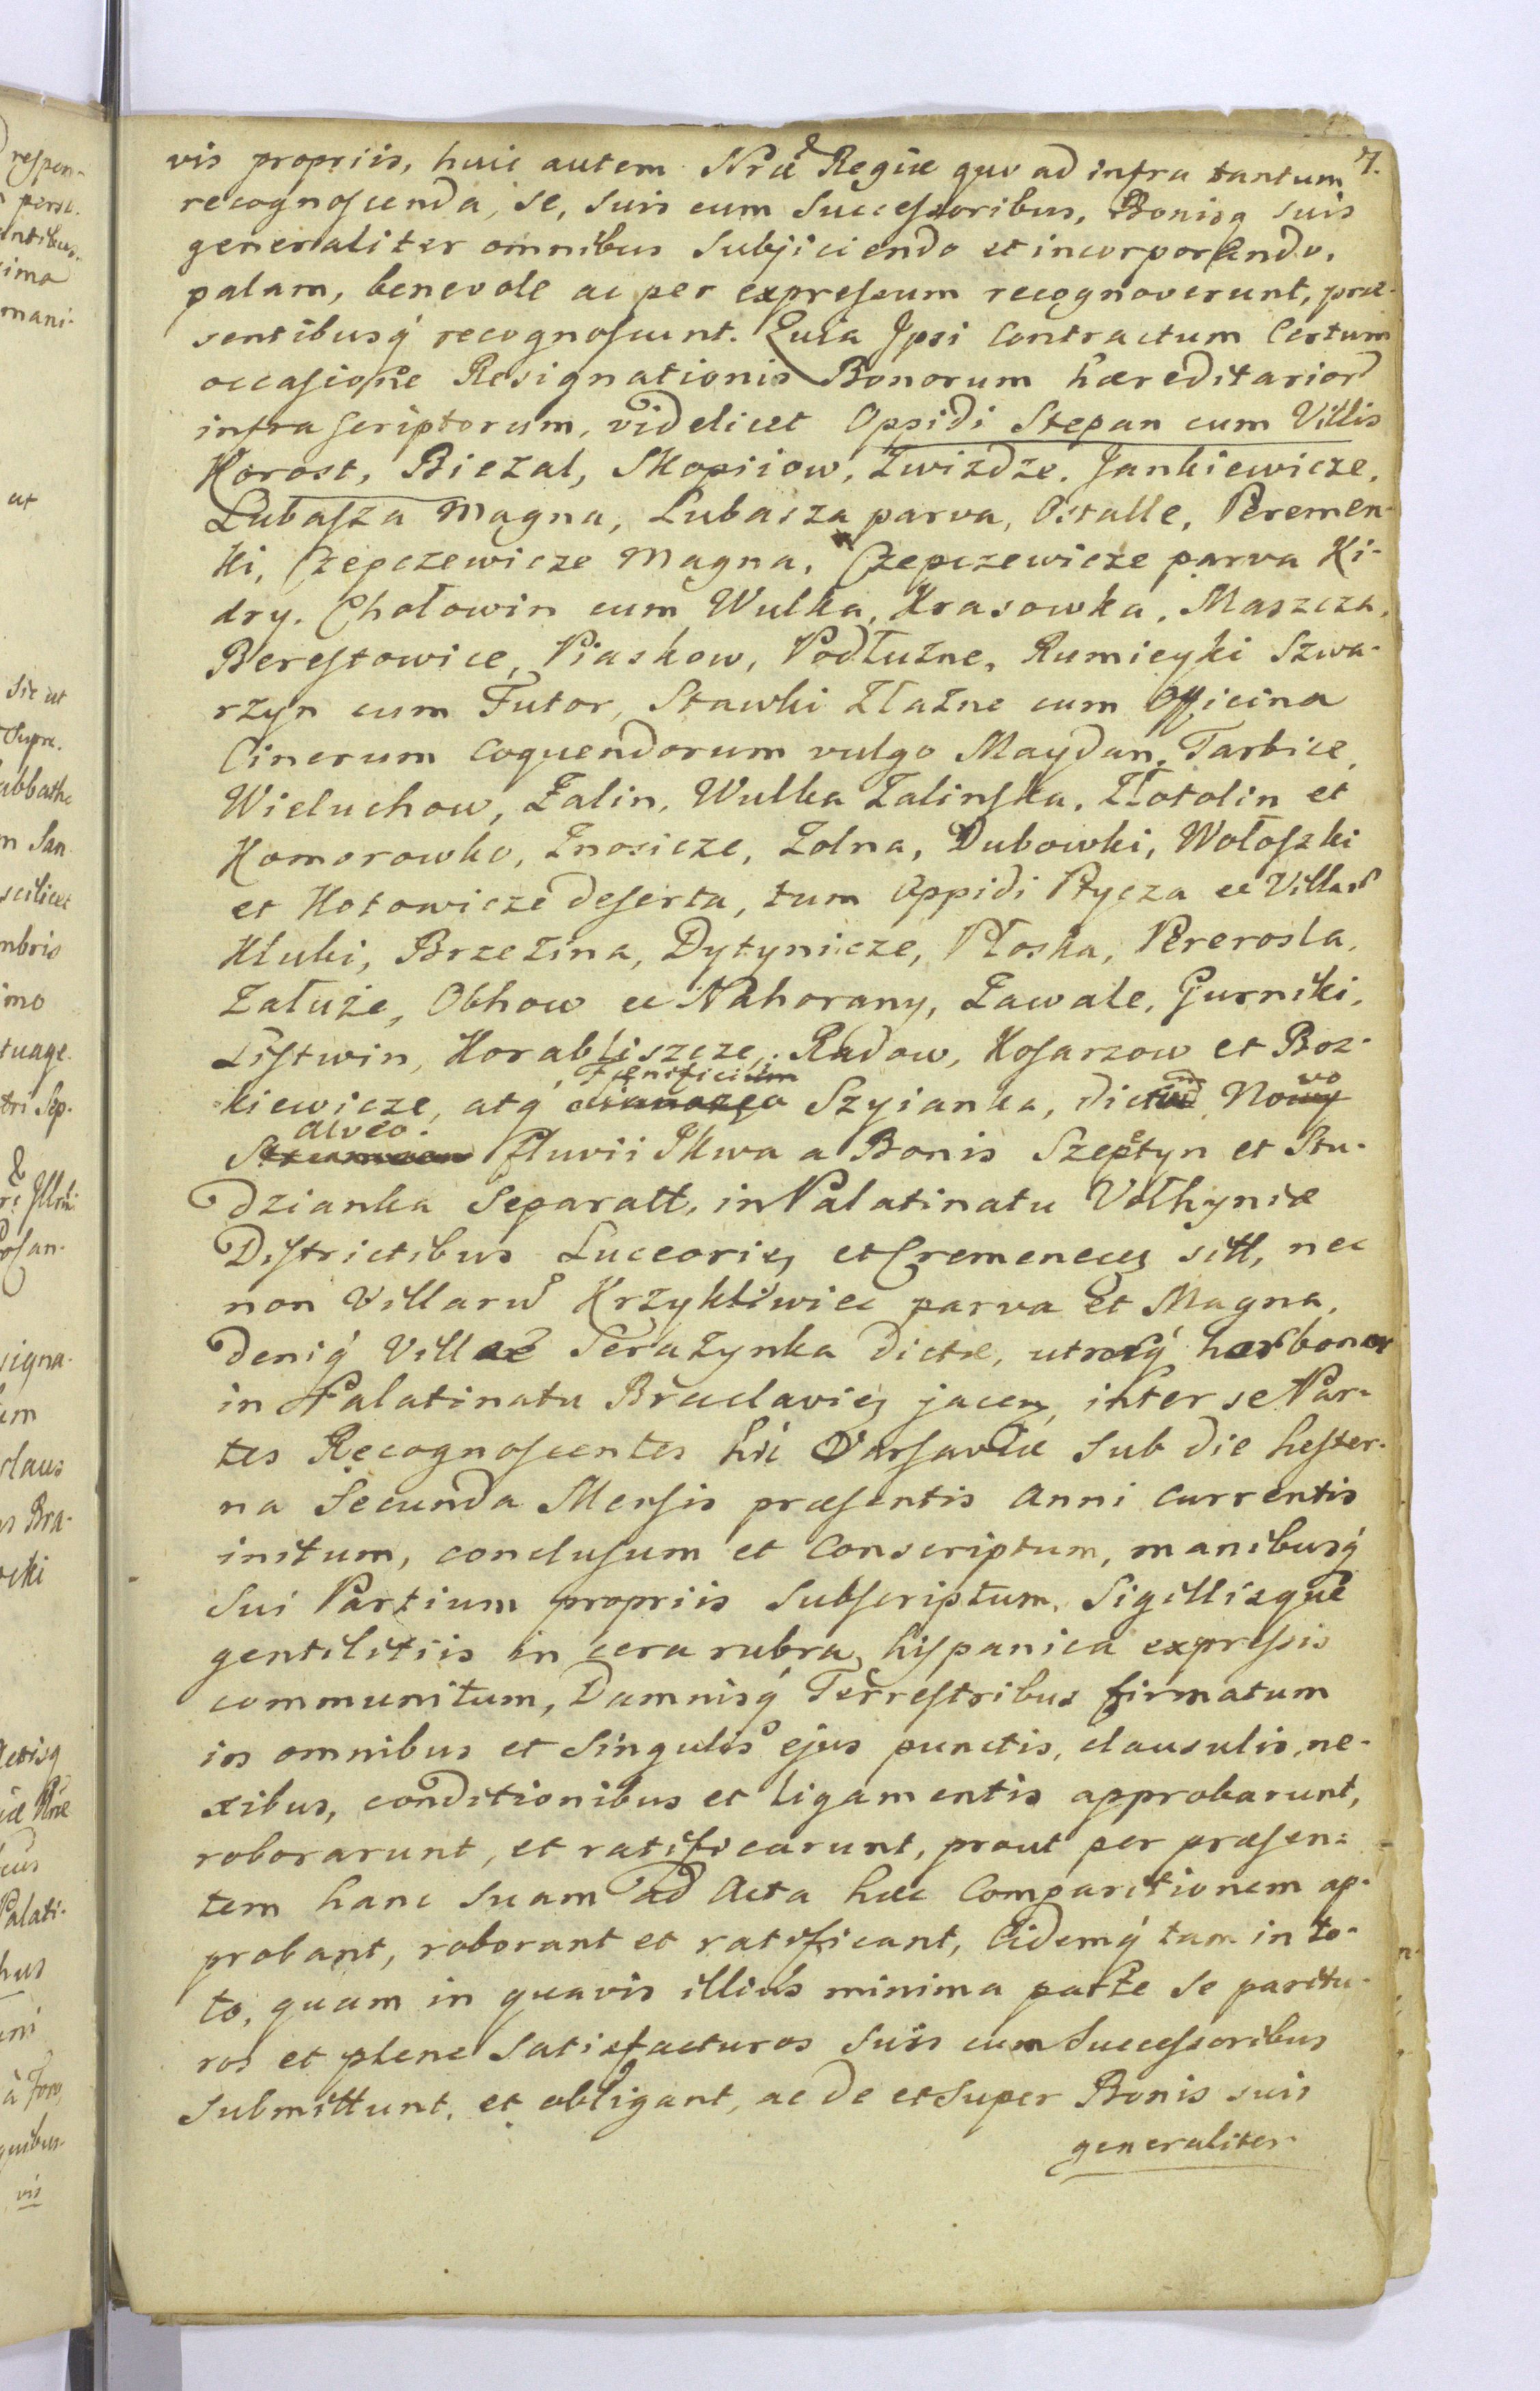 7.
vis propriis, huic autem Nræ Regiæ quo ad infra tantum
recognoscenda, se, suis cum Successoribus, Bonisq suis
generaliter omnibus Subjiciendo et incorporando,
palam, benevole ac per expressum recognoverunt, præ-
sentibusq́ recognoscunt. Quia Ipsi Contractum Certum
occasione Resignationis Bonorum hæreditarior
infrascriptorum, videlicet Oppidi Stepan cum Villis
Korost, Biczal, Skopiiow, Zwizdze, Jankiewicze,
Lubasza Magna, Lubasza parva, Ostalle, Peremen-
ki, Czepczewicze Magna, Czepczewicze parva Ki-
dry. Chołowin cum Wulka, Krasowka, Maszcza,
Berestowice, Piaskow, Podłużne, Rumieyki Szwa-
rzyn cum Futor, Stawki Złazne cum Officina
Cinerum coquendorum vulgo Maydan, Tarbice,
Wieluchow, Zalin, Wulka Zalinska, Złotolin et
Komorowko, Znosicze, Zolna, Dubowki, Wołoszki
et Kotowicze deserta, tum Oppidi Ptycza et Villar
Kluki, Brzezina, Dytynicze, Płoska, Pererosla,
Załuże, Obhow et Nahorany, Zawale, Gurniki,
Listwin, Korabliszcze, Radow, Kosarzow et Boz-
kiewicze, atq́ Fœnificium Szyianka, dictum Nowo
alveo fluvii Ikwa a Bonis Szepetyn et Stu-
dzianka Separatt, in Palatinatu Volhyniæ
Districtibus Luceorien et Cremenecen sitt, nec
non Villarum Krzykliwiec parva et Magna,
deniq́ Villæ Serazynka dictæ,
in Palatinatu Braclavien jacen, inter se Par-
tes Recognoscentes hic Varsaviæ sub die hester-
na Secunda Mensis præsentis Anni Currentis
initum, conclusum et Conscriptum, manibusq́
Sui Partium propriis Subscriptum, Sigillisque
gentilitiis in cera rubra hispanica expressis
communitum, Damnisq́ Terrestribus firmatum
in omnibus et Singulis ejus punctis, clausulis, ne-
xibus, conditionibus et ligamentis approbarunt,
roborarunt, et ratificarunt, prout per præsen-
tem hanc suam ad Acta hæc Comparitionem ap-
probant, roborant et ratificant, Eidemq́ tam in to-
to, quam in quavis illius minima parte se paritu-
ros et plene Satisfacturos suis cum Successoribus
submittunt, et obligant, ac de et super Bonis suis
generaliter